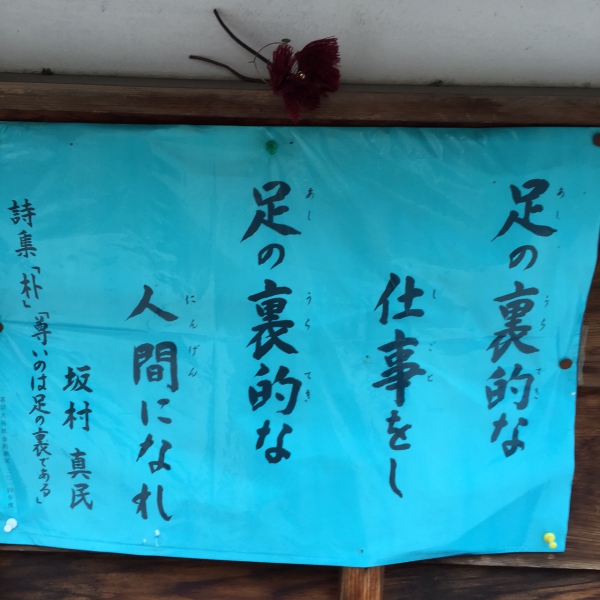 足の裏的な
仕事をし
足の裏的な
人間になれ
坂村 真民
詩集「朴」「尊いのは足の裏である」